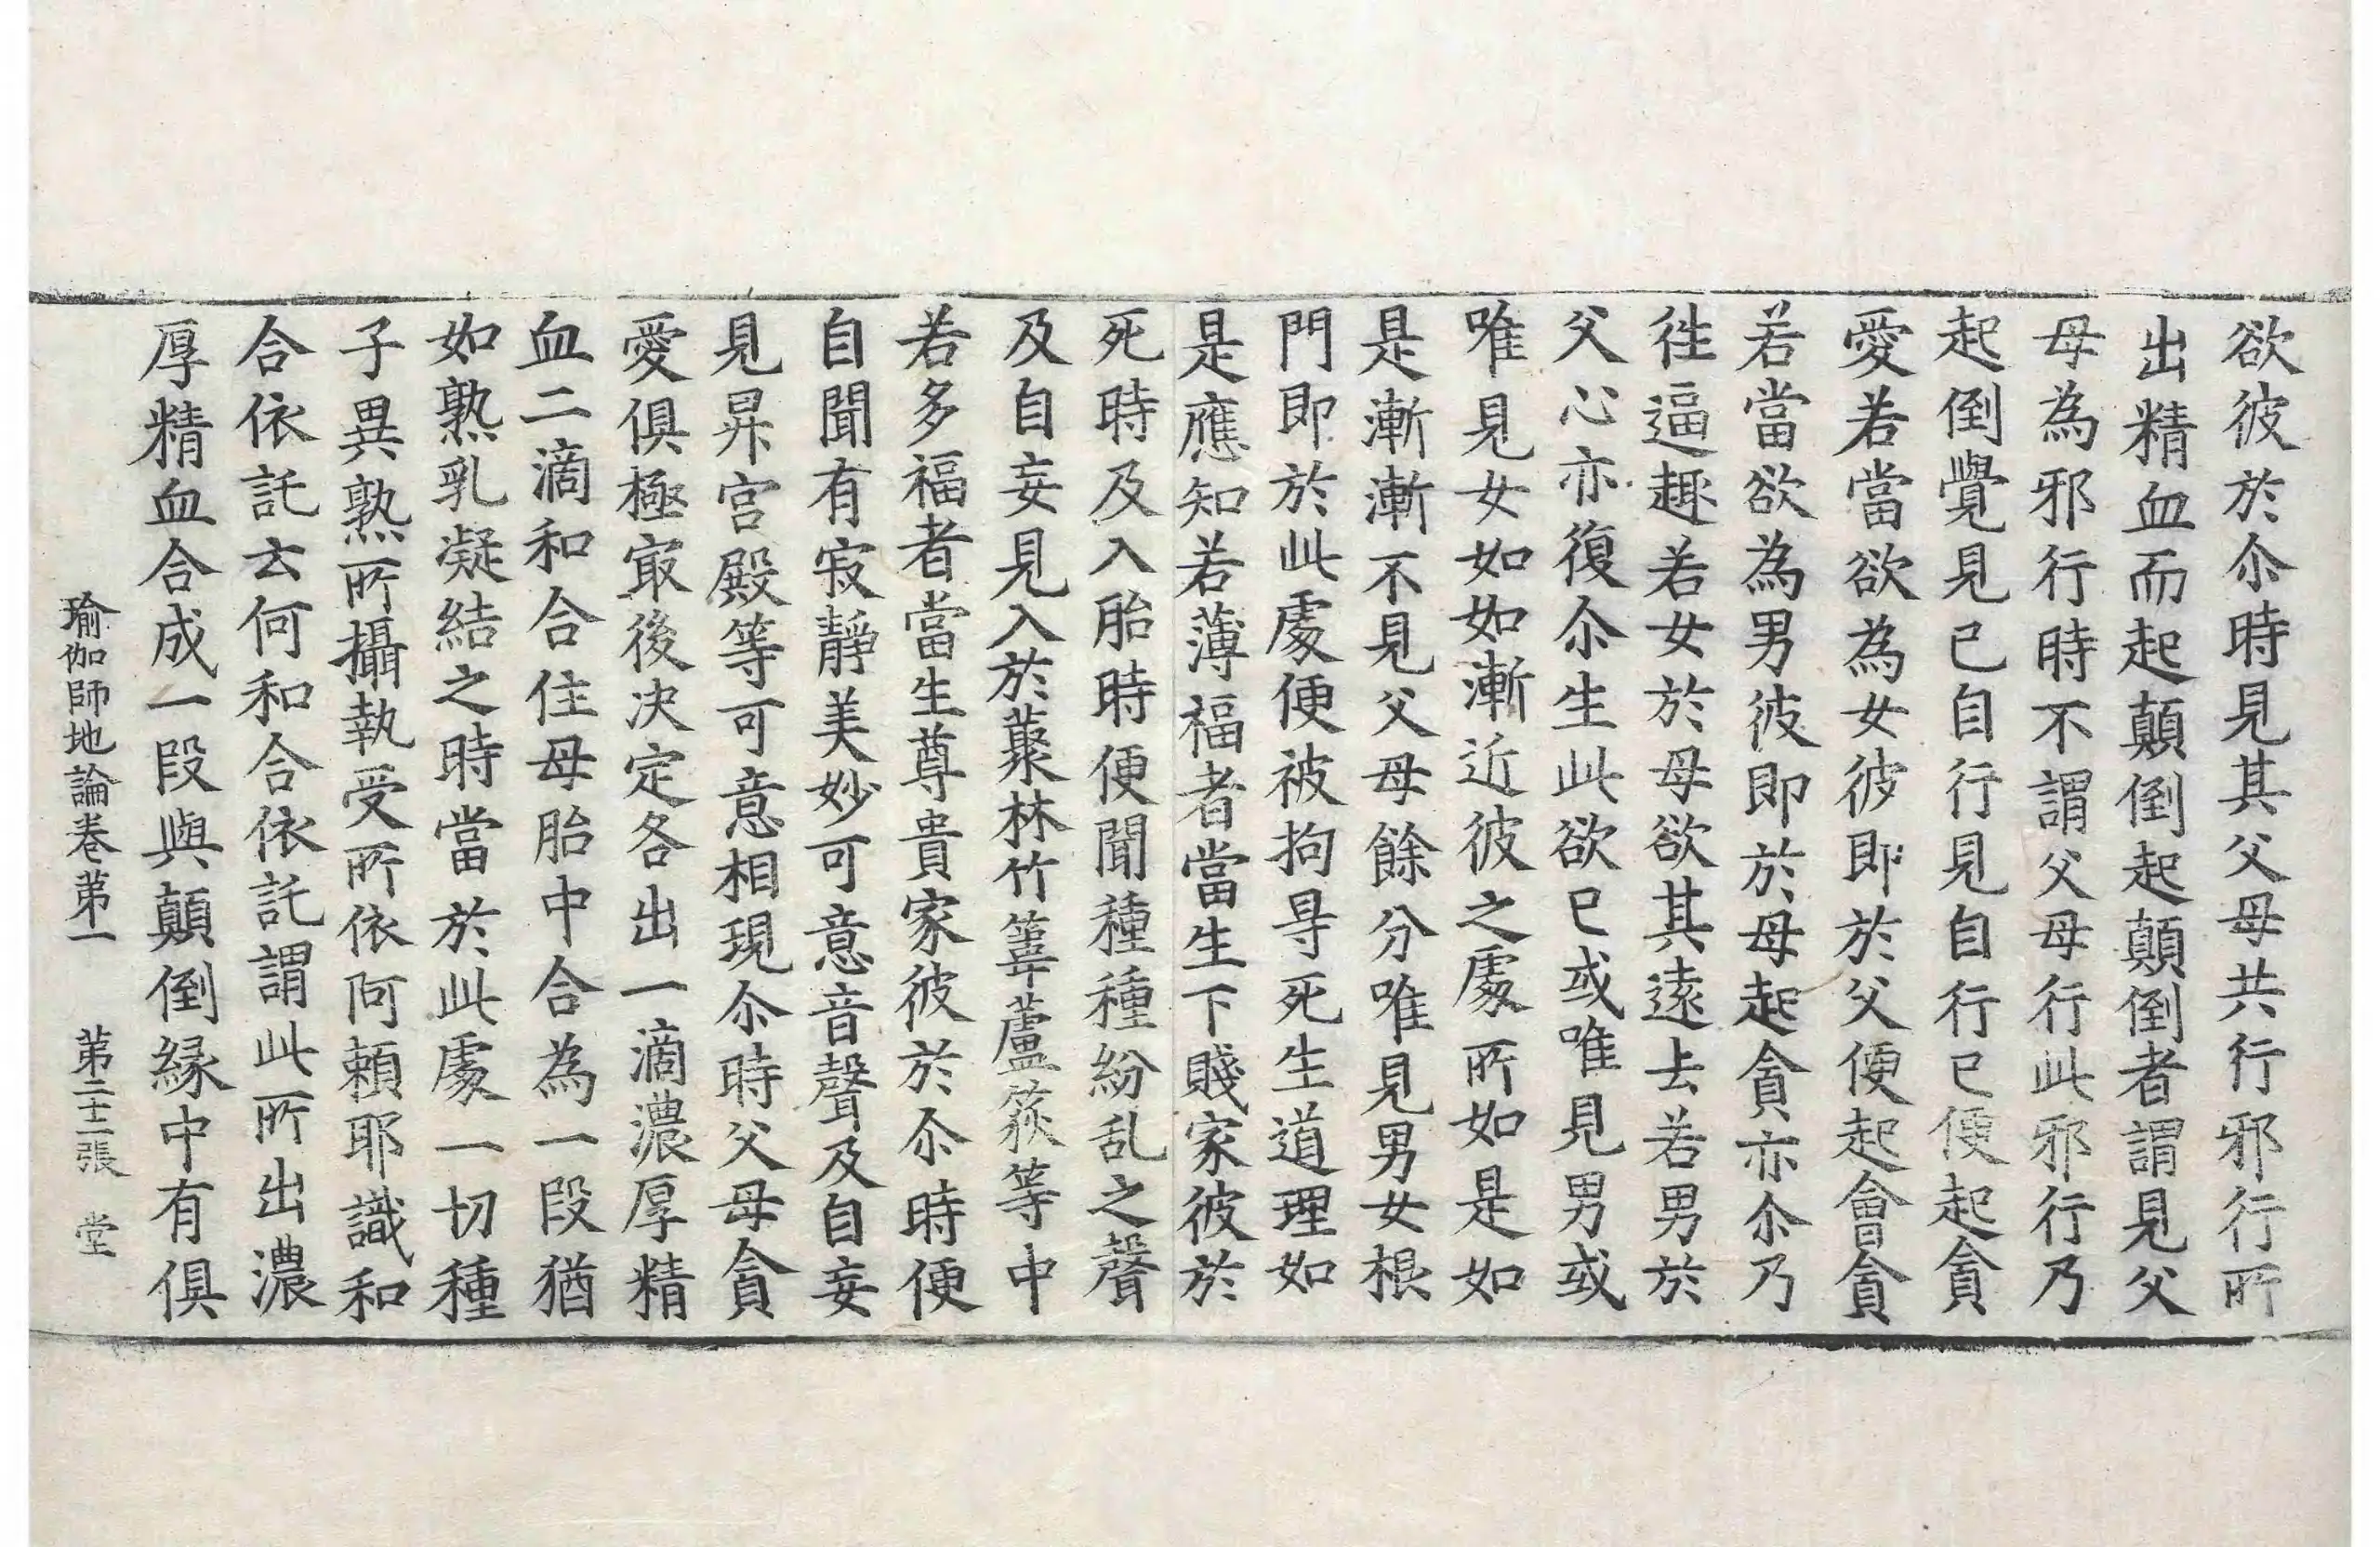 欲彼於尒時見其父母共行邪行所
出精血而起顛倒起顛倒者謂見父
母為邪行時不謂父母行此邪行乃
起倒覺見已自行見自行已便起貪
愛若當欲為女彼即於父便起會貪
若當欲為男彼即於母起貪亦尒乃
徃逼趣若女於母欲其遠去若男於
父心亦復尒生此欲已或唯見男或
唯見女如如漸近彼之處所如是如
是漸漸不見父母餘分唯見男女根
門即於此處便被拘㝵死生道理如
是應知若薄福者當生下賤家彼於
死時及入胎時便聞種種紛乱之聲
及自妄見入於藂林竹葦蘆荻等中
若多福者當生尊貴家彼於尒時便
自聞有寂靜美妙可意音聲及自妄
見昇宮殿等可意相現尒時父母貪
愛俱極㝡後决定各出一滴濃厚精
血二滴和合住母胎中合為一段猶
如熟乳凝結之時當於此處一切種
子異熟所攝執受所依阿賴耶識和
合依託云何和合依託謂此所出濃
厚精血合成一段與顛倒緣中有俱
瑜伽師地論卷苐一 苐二十三張 堂